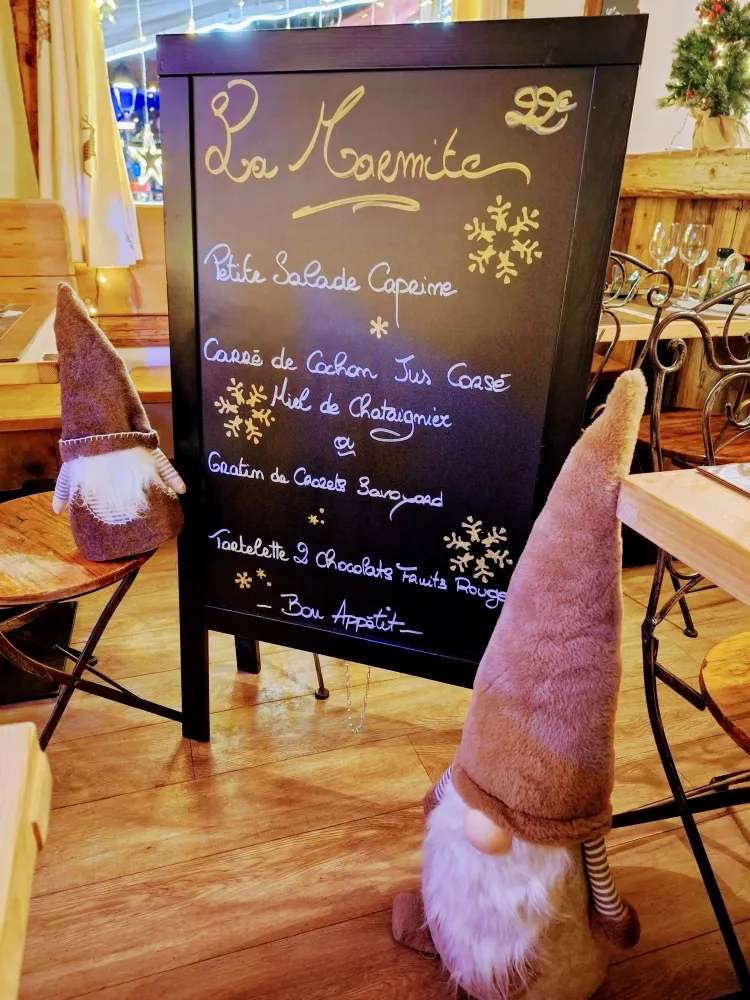 La Marmite 22€
Petite Salade Caprine
Carré de Cochon Jus Corsé
Miel de Chataignier
ou
Gratin de Crozets Savoyard
Tartelette 2 Chocolats Fruits Rouges
- Bon Appétit -